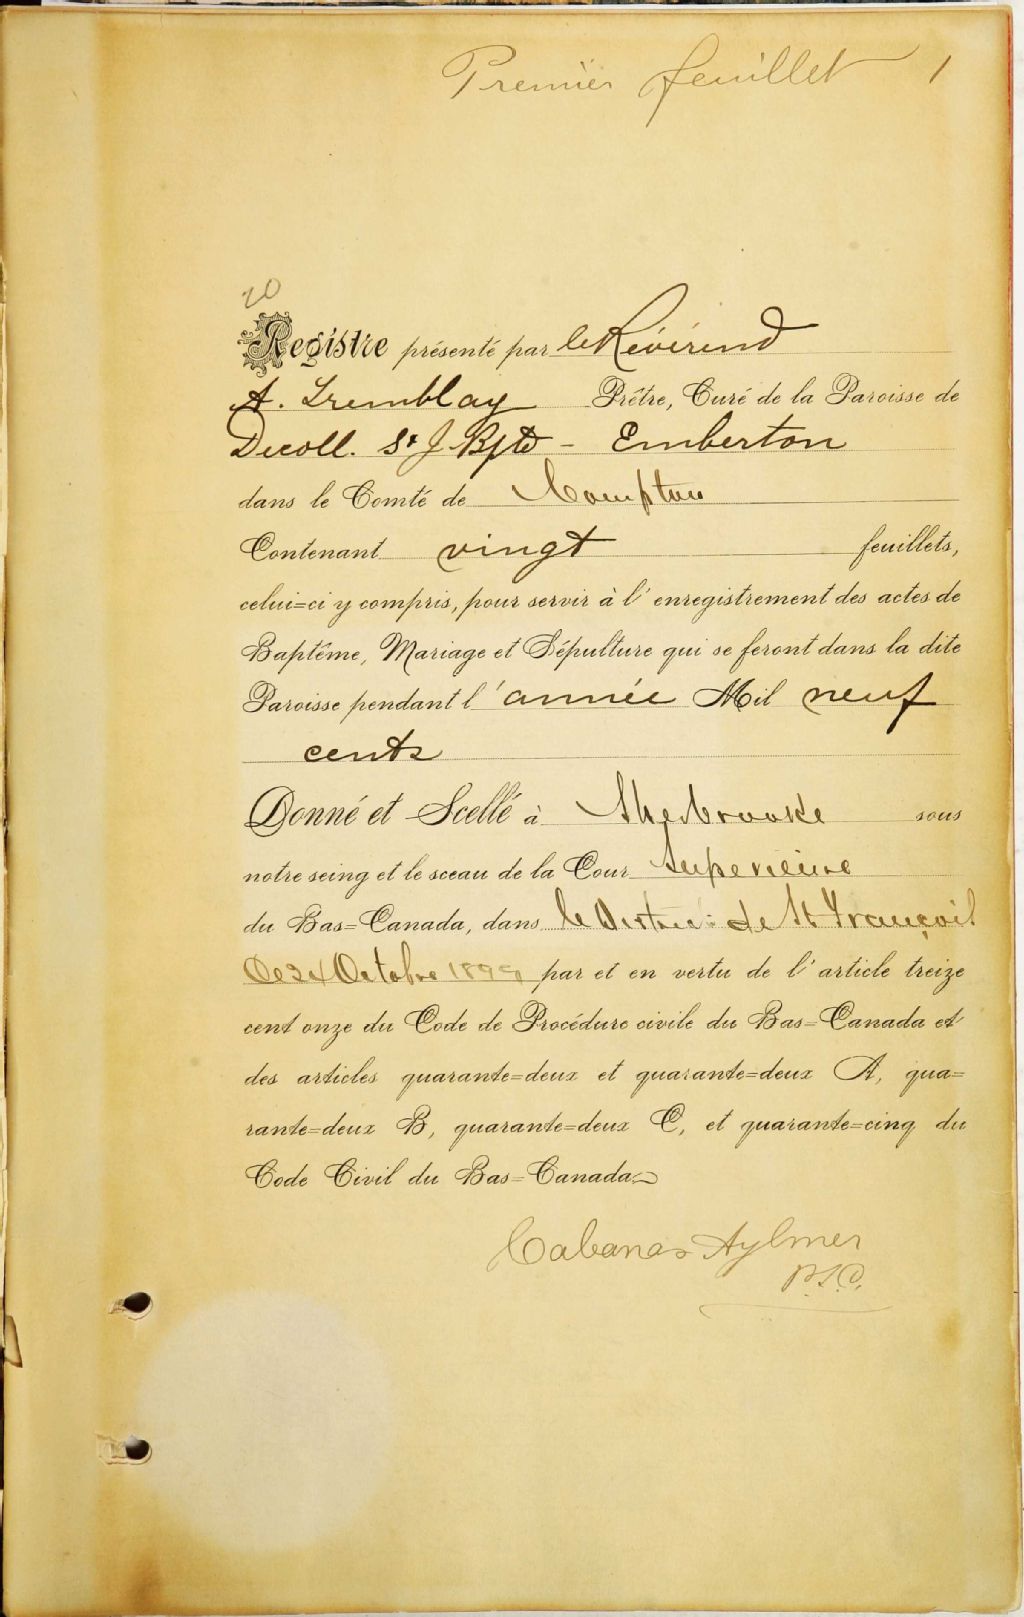 Premier feuillet 1
20
Registre présenté par le Révérend
A. Tremblay Prêtre, Curé de la Paroisse de
Decoll. St J-Bpte - Emberton
dans le Comté de Compton
Contenant vingt feuillets,
celui=ci y compris, pour servir à l'enregistrement des actes de
Baptême, Mariage et Sépulture qui se feront dans la dite
Paroisse pendant l'année Mil neuf
cents
Donné et Scellé à Sherbrooke sous
notre seing et le sceau de la Cour Superieure
du Bas=Canada, dans le District de St François
Ce 24 Octobre 1899 par et en vertu de l'article treize
cent onze du Code de Procédure civile du Bas=Canada et
des articles quarante=deux et quarante=deux A, qua=
rante=deux B, quarante=deux C, et quarante=cinq du
Code Civil du Bas=Canada.
Cabana & Aylmer
P.S.C.